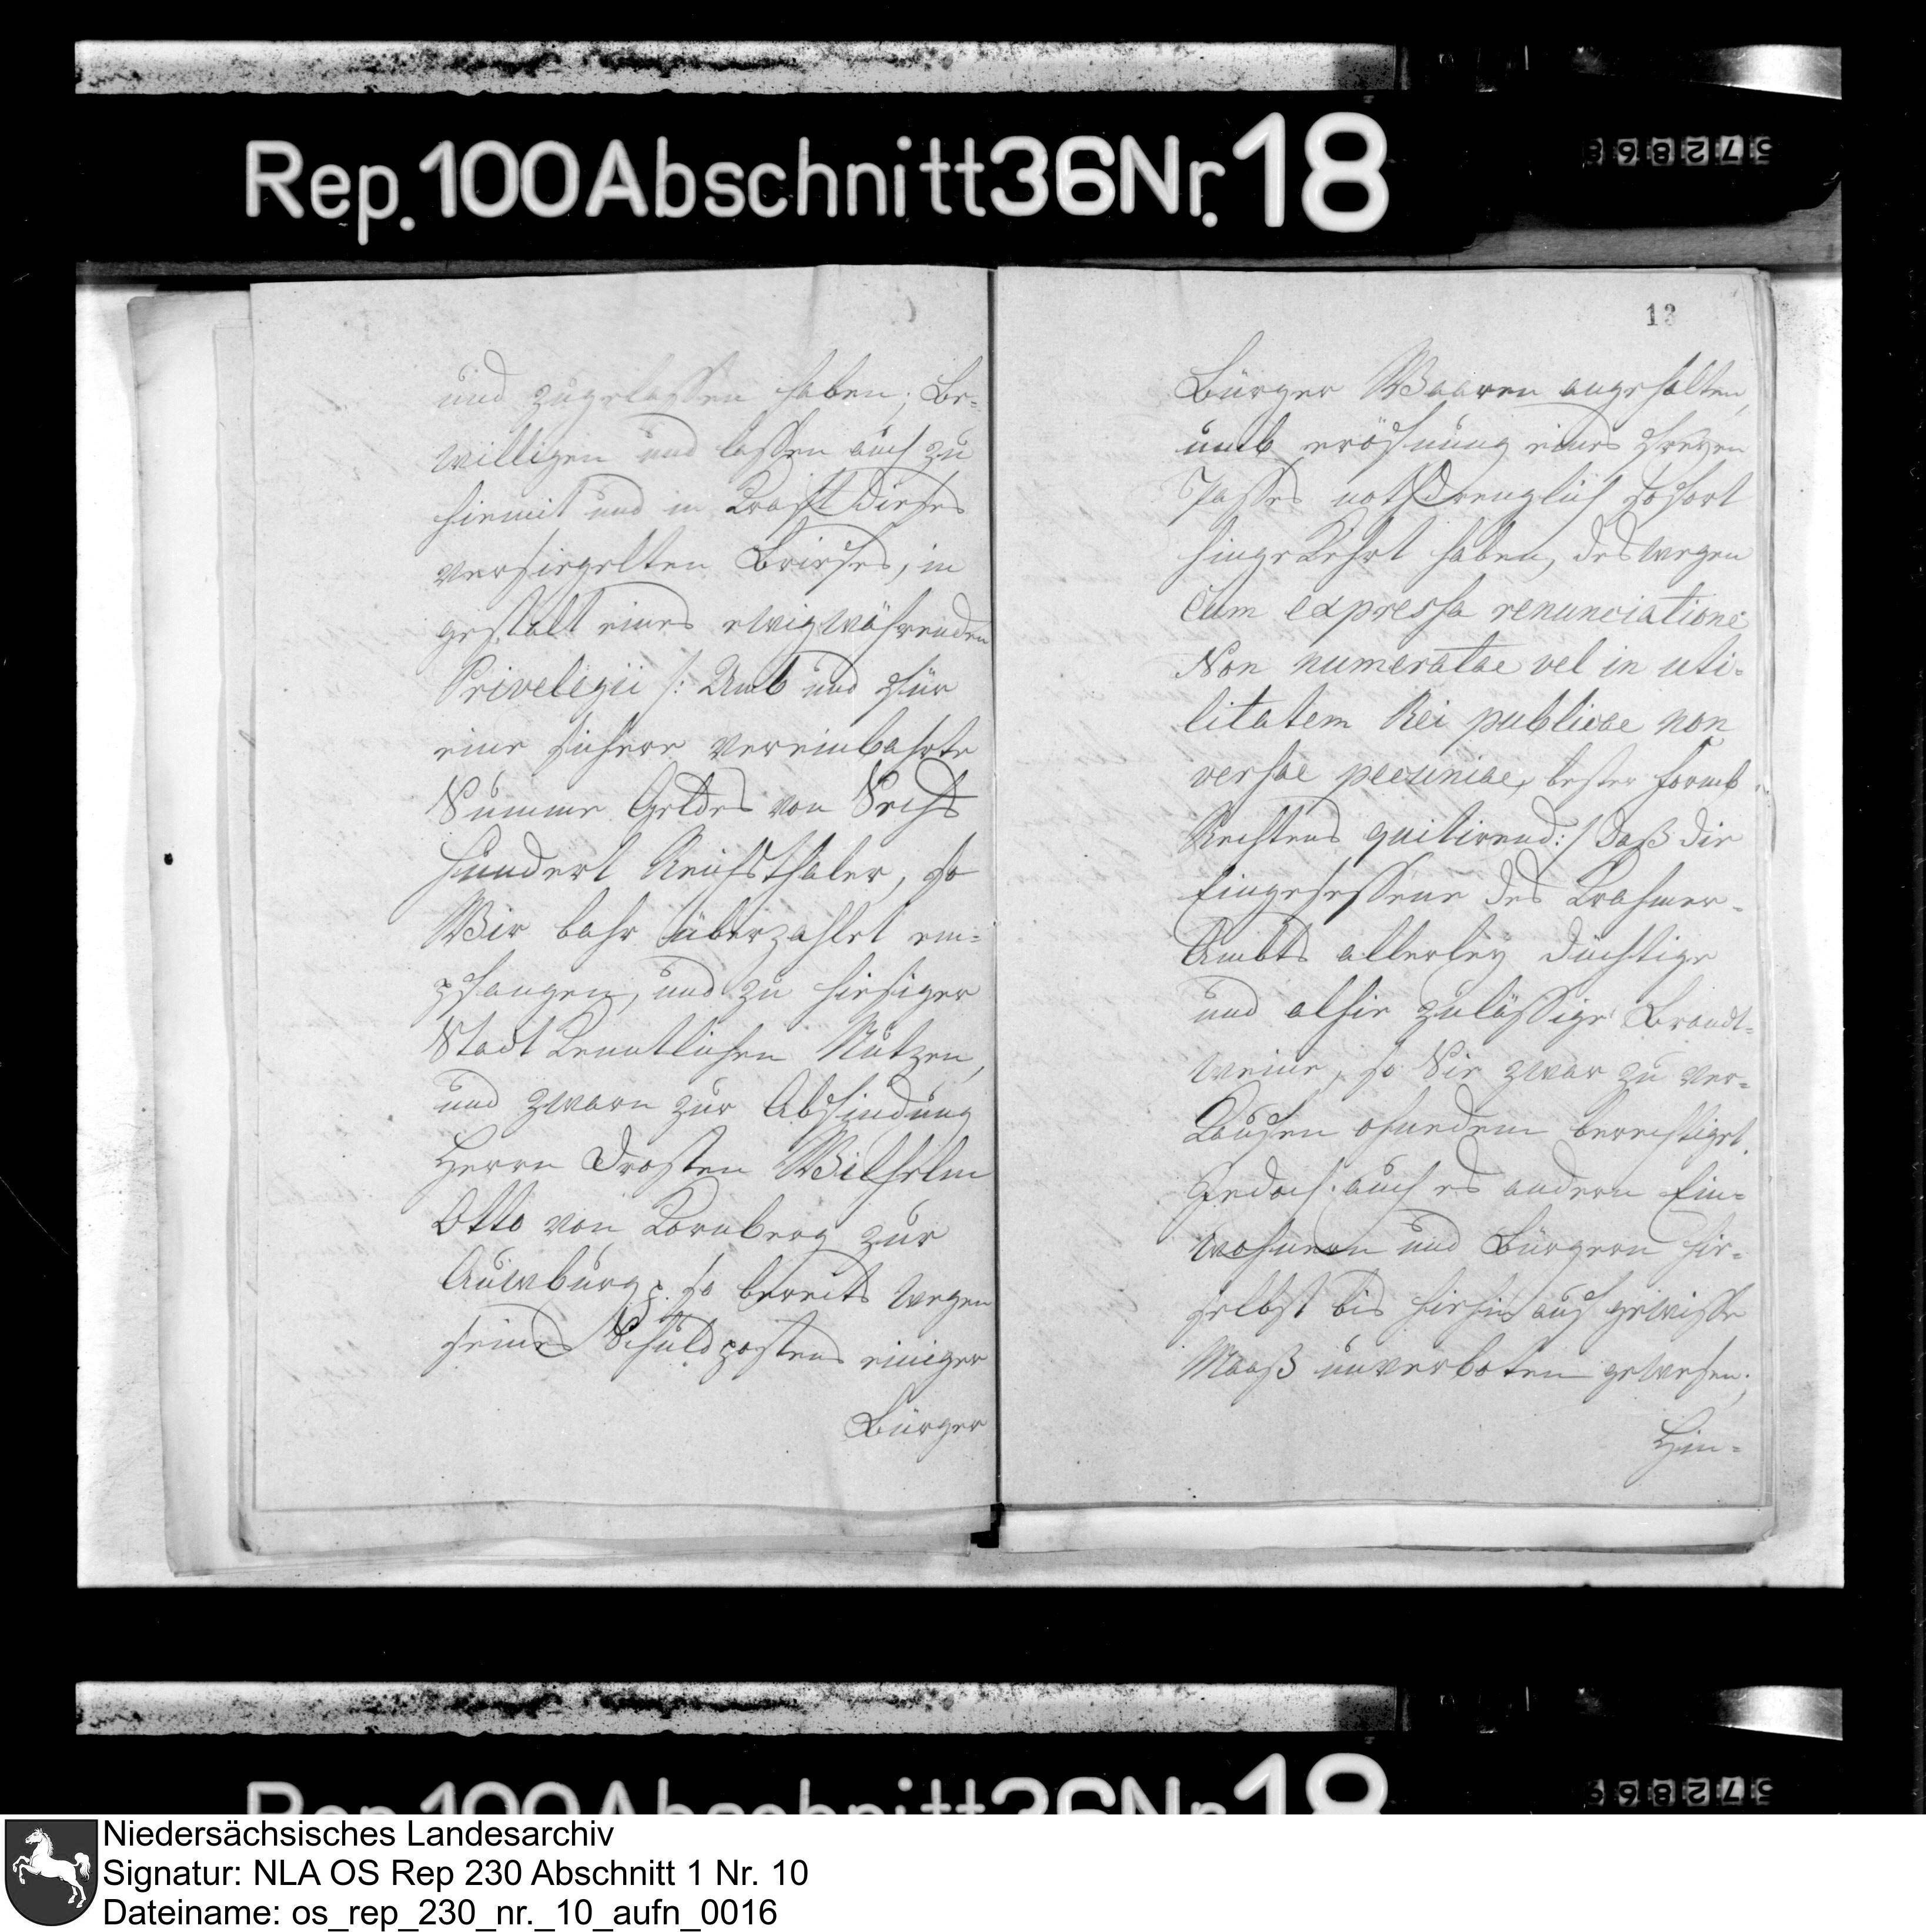 Rep. 100 Abschnitt 36 Nr. 18
und zugelaßen haben; Be-
willigen und laßen auch zu
hiemit und in Krafft dieses
versiegelten Brieffes, in
gestalt eines ewigwährenden
Privelegii /: Umb und für
eine sichere vereinbahrte
Summe Geldes von Sechs
Hundert Reichsthaler, so
Wir bahr überzahlet em-
pfangen, und zu hiesiger
Stadt Kenntlichen Nutzen,
und zwarn zur Abfindung
Herrn Drosten Wilhelm
Otto von Kornberg zur
Auwburg p. so bereits wegen
seines Schuldpostens einiger
Bürger
13
Bürger Waaren angehalten,
umb eröfnung eines freyen
Passes nothdrenglich sofort
hingekehrt haben, deswegen
Cum expressa renunciatione
Non numeratae vel in uti-
litatem Rei publicae non
versae pecuniae, bester formb
Rechtens quitirend :/ daß die
Eingesessene des Krahmer-
Ambts allerley düchtige
und alhie zuläßige Brandt-
weine, so Sie zwar zu ver-
Kaufen ohnedem berechtiget,
Jedoch auch es andern Ein-
wohnern und Bürgern hie-
selbst bis hiehin auf gewisse
Maaß unverboten gewesen;
Hin-
Niedersächsisches Landesarchiv
Signatur: NLA OS Rep 230 Abschnitt 1 Nr. 10
Dateiname: os_rep_230_nr._10_aufn_0016